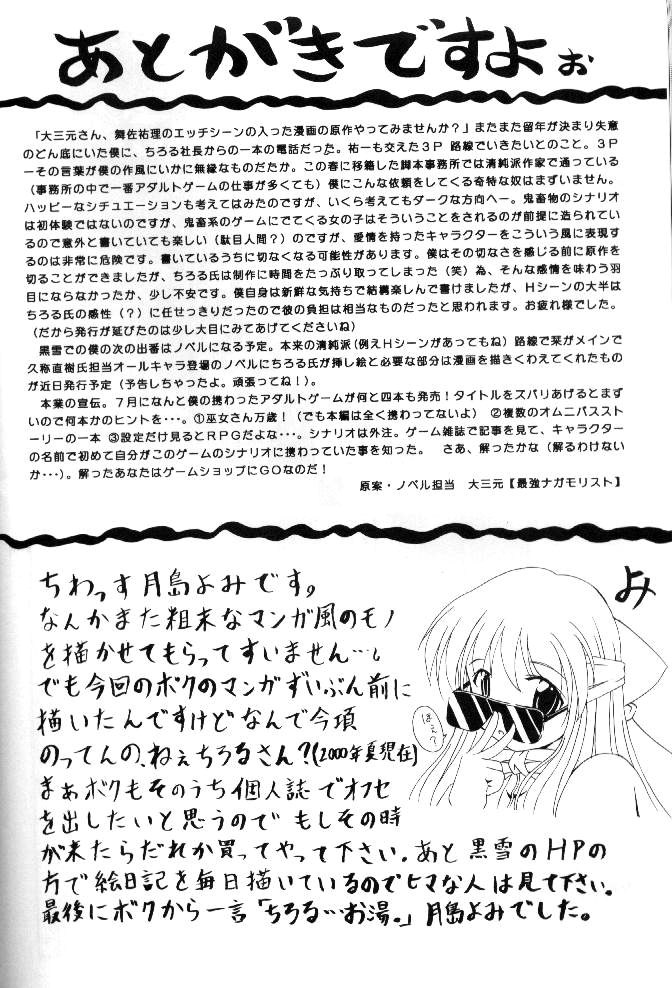 あとがきですよぉ
「大三元さん、舞佐祐理のエッチシーンの入った漫画の原作やってみませんか？」またまた留年が決まり失意
のどん底にいた僕に、ちろる社長からの一本の電話だった。祐一も交えた３Ｐ 路線でいきたいとのこと。３Ｐ
ーその言葉が僕の作風にいかに無縁なものだたか。この春に移籍した脚本事務所では清純派作家で通っている
（事務所の中で一番アダルトゲームの仕事が多くても）僕にこんな依頼をしてくる奇特な奴はまずいません。
ハッピーなシチュエーションも考えてはみたのですが、いくら考えてもダークな方向へー。鬼畜物のシナリオ
は初体験ではないのですが、鬼畜系のゲームにでてくる女の子はそういうことをされるのが前提に造られてい
るので意外と書いていても楽しい（駄目人間？）のですが、愛情を持ったキャラクターをこういう風に表現す
るのは非常に危険です。書いているうちに切なくなる可能性があります。僕はその切なさを感じる前に原作を
切ることができましたが、ちろる氏は制作に時間をたっぷり取ってしまった（笑）為、そんな感情を味わう羽
目にならなかったか、少し不安です。僕自身は新鮮な気持ちで結構楽しんで書けましたが、Ｈシーンの大半は
ちろる氏の感性（？）に任せっきりだったので彼の負担は相当なものだったと思われます。お疲れ様でした。
（だから発行が延びたのは少し大目にみてあげてくださいね）
黒雪での僕の次の出番はノベルになる予定。本来の清純派（例えＨシーンがあってもね）路線で栞がメインで
久弥直樹氏担当オールキャラ登場のノベルにちろる氏が挿し絵と必要な部分は漫画を描きくわえてくれたもの
が近日発行予定（予告しちゃったよ。頑張ってね！）。
本業の宣伝。７月になんと僕の携わったアダルトゲームが何と四本も発売！タイトルをズバリあげるとまず
いので何本かのヒントを・・・。①巫女さん万歳！（でも本編は全く携わってないよ） ②複数のオムニバススト
ーリーの一本 ③設定だけ見るとＲＰＧだよな・・・。シナリオは外注。ゲーム雑誌で記事を見て、キャラクター
の名前で初めて自分がこのゲームのシナリオに携わっていた事を知った。 さあ、解ったかな（解るわけない
か・・・）。解ったあなたはゲームショップにＧＯなのだ！
原案・ノベル担当 大三元【最強ナガモリスト】
ちわっす月島よみです。
なんかまた粗末なマンガ風のモノ
を描かせてもらってすいません…。
でも今回のボクのマンガずいぶん前に
描いたんですけどなんで今頃
のってんの、ねぇちろるさん？(2000年夏現在)
まぁボクもそのうち個人誌でオフセ
を出したいと思うので もしその時
が来たらだれか買ってやって下さい。あと 黒雪のHPの
方で絵日記を毎日描いているのでヒマな人は見て下さい。
最後にボクから一言「ちろる…お湯。」月島よみでした。
よみ